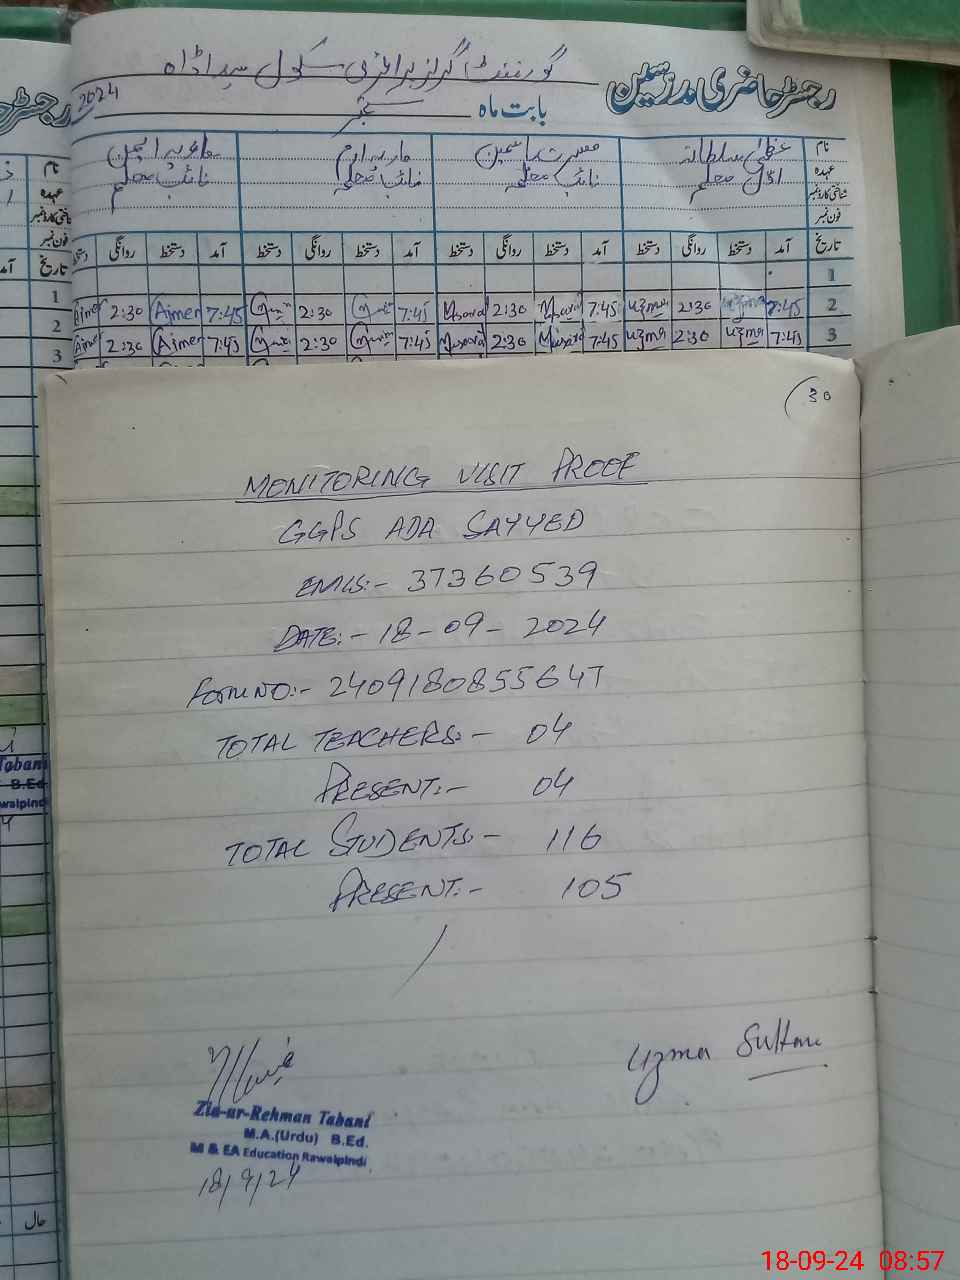 گورنمنٹ گرلز پرائمری سکول سید اڈاہ
رجسٹر حاضری مدرسین
بابت ماہ ستمبر 2024
نام عظمیٰ سلطانہ مسرت یاسمین ماریہ ارم
عہدہ اول معلمہ نائب معلمہ نائب معلمہ نائب معلم
شناختی کارڈ نمبر
فون نمبر
تاریخ آمد دستخط روانگی دستخط آمد دستخط روانگی دستخط آمد دستخط روانگی دستخط آمد دستخط روانگی دستخط
1
2 7:45 uzma 2:30 uzma 7:45 Musarat 2:30 Musarat 7:45 2:30 7:45 Aimen 2:30 Aimen
3 7:45 uzma 2:30 uzma 7:45 Musarat 2:30 Musarat 7:45 2:30 7:45 Aimen 2:30 Aimen
30
MONITORING VISIT PROOF
GGPS ADA SAYYED
EMIS:- 37360539
DATE:- 18-09-2024
Form NO:- 2409180855647
TOTAL TEACHERS:- 04
PRESENT:- 04
TOTAL STUDENTS:- 116
PRESENT:- 105
Uzma Sultana
Zia-ur-Rehman Tabani
M.A.(Urdu) B.Ed.
M & EA Education Rawalpindi
18/9/24
Tabani
B.Ed.
حال
18-09-24 08:57